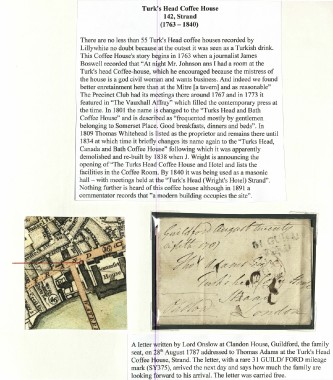 Turk's Head Coffee House
142, Strand
(1763 – 1840)
There are no less than 55 Turk's Head coffee houses recorded by
Lillywhite no doubt because at the outset it was seen as a Turkish drink.
This Coffee House's story begins in 1763 when a journalist James
Boswell recorded that "At night Mr. Johnson ans I had a room at the
Turk's head Coffee-house, which he encouraged because the mistress of
the house is a god civil woman and wants business. And indeed we found
better entertainment here than at the Mitre [a tavern] and as reasonable"
The Precinct Club had its meetings there around 1767 and in 1773 it
featured in "The Vauxhall Affray" which filled the contemporary press at
the time. In 1801 the name is changed to the "Turks Head and Bath
Coffee House" and is described as "frequented mostly by gentlemen
belonging to Somerset Place. Good breakfasts, dinners and beds". In
1809 Thomas Whitehead is listed as the proprietor and remains there until
1834 at which time it briefly changes its name again to the "Turks Head,
Canada and Bath Coffee House" following which it was apparently
demolished and re-built by 1838 when J. Wright is announcing the
opening of "The Turks Head Coffee House and Hotel and lists the
facilities in the Coffee Room. By 1840 it was being used as a masonic
hall – with meetings held at the "Turk's Head (Wright's Hotel) Strand".
Nothing further is heard of this coffee house although in 1891 a
commentator records that "a modern building occupies the site".
Guildford August twenty
eighth 1787
Thos Adams Esqr
Turks head Coffee House
Strand
London
A letter written by Lord Onslow at Clandon House, Guildford, the family
seat, on 28th August 1787 addressed to Thomas Adams at the Turk's Head
Coffee House, Strand. The letter, with a rare 31 GUILD/ FORD mileage
mark (SY375), arrived the next day and says how much the family are
looking forward to his arrival. The letter was carried free.